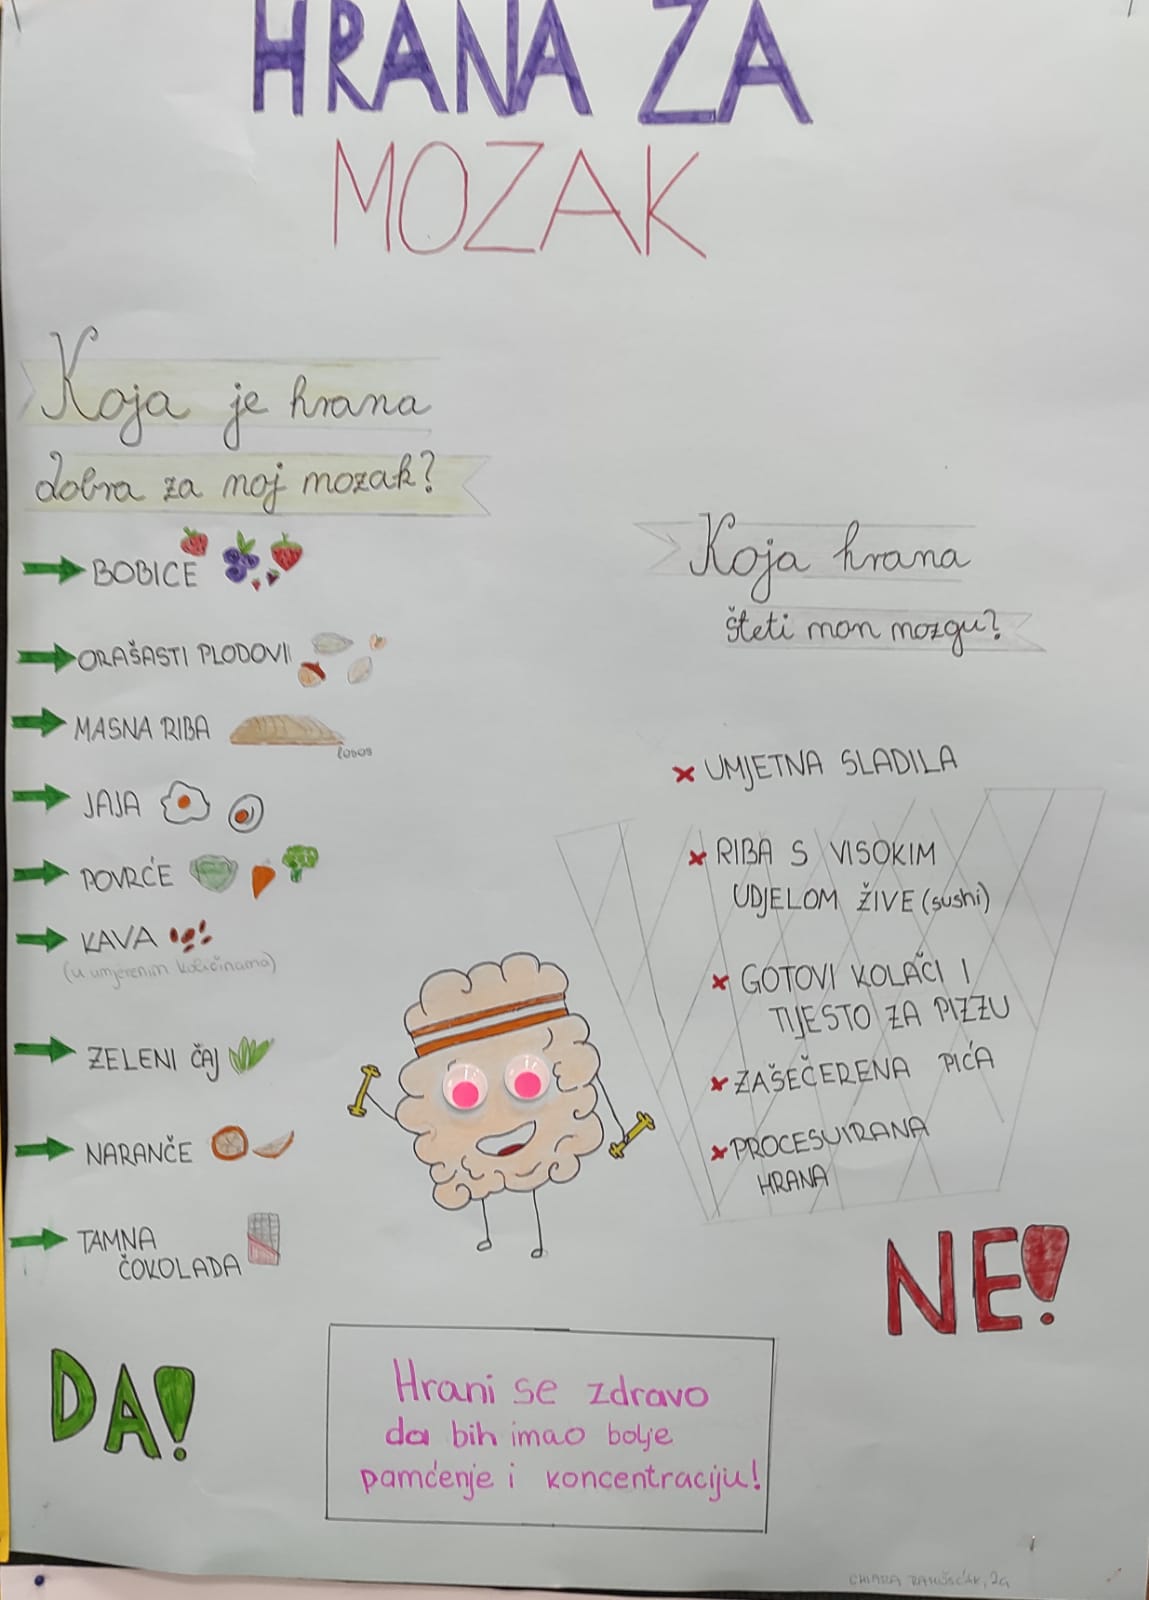 HRANA ZA
MOZAK
Koja je hrana
dobra za moj mozak?
BOBICE
ORAŠASTI PLODOVI
MASNA RIBA
losos
JAJA
POVRĆE
KAVA
(u umjerenim količinama)
ZELENI ČAJ
NARANČE
TAMNA
ČOKOLADA
DA!
Koja hrana
šteti mom mozgu?
UMJETNA SLADILA
RIBA S VISOKIM
UDJELOM ŽIVE (sushi)
GOTOVI KOLAČI I
TIJESTO ZA PIZZU
ZAŠEČERENA PIĆA
PROCESUIRANA
HRANA
NE!
Hrani se zdravo
da bih imao bolje
pamćenje i koncentraciju!
CHIARA